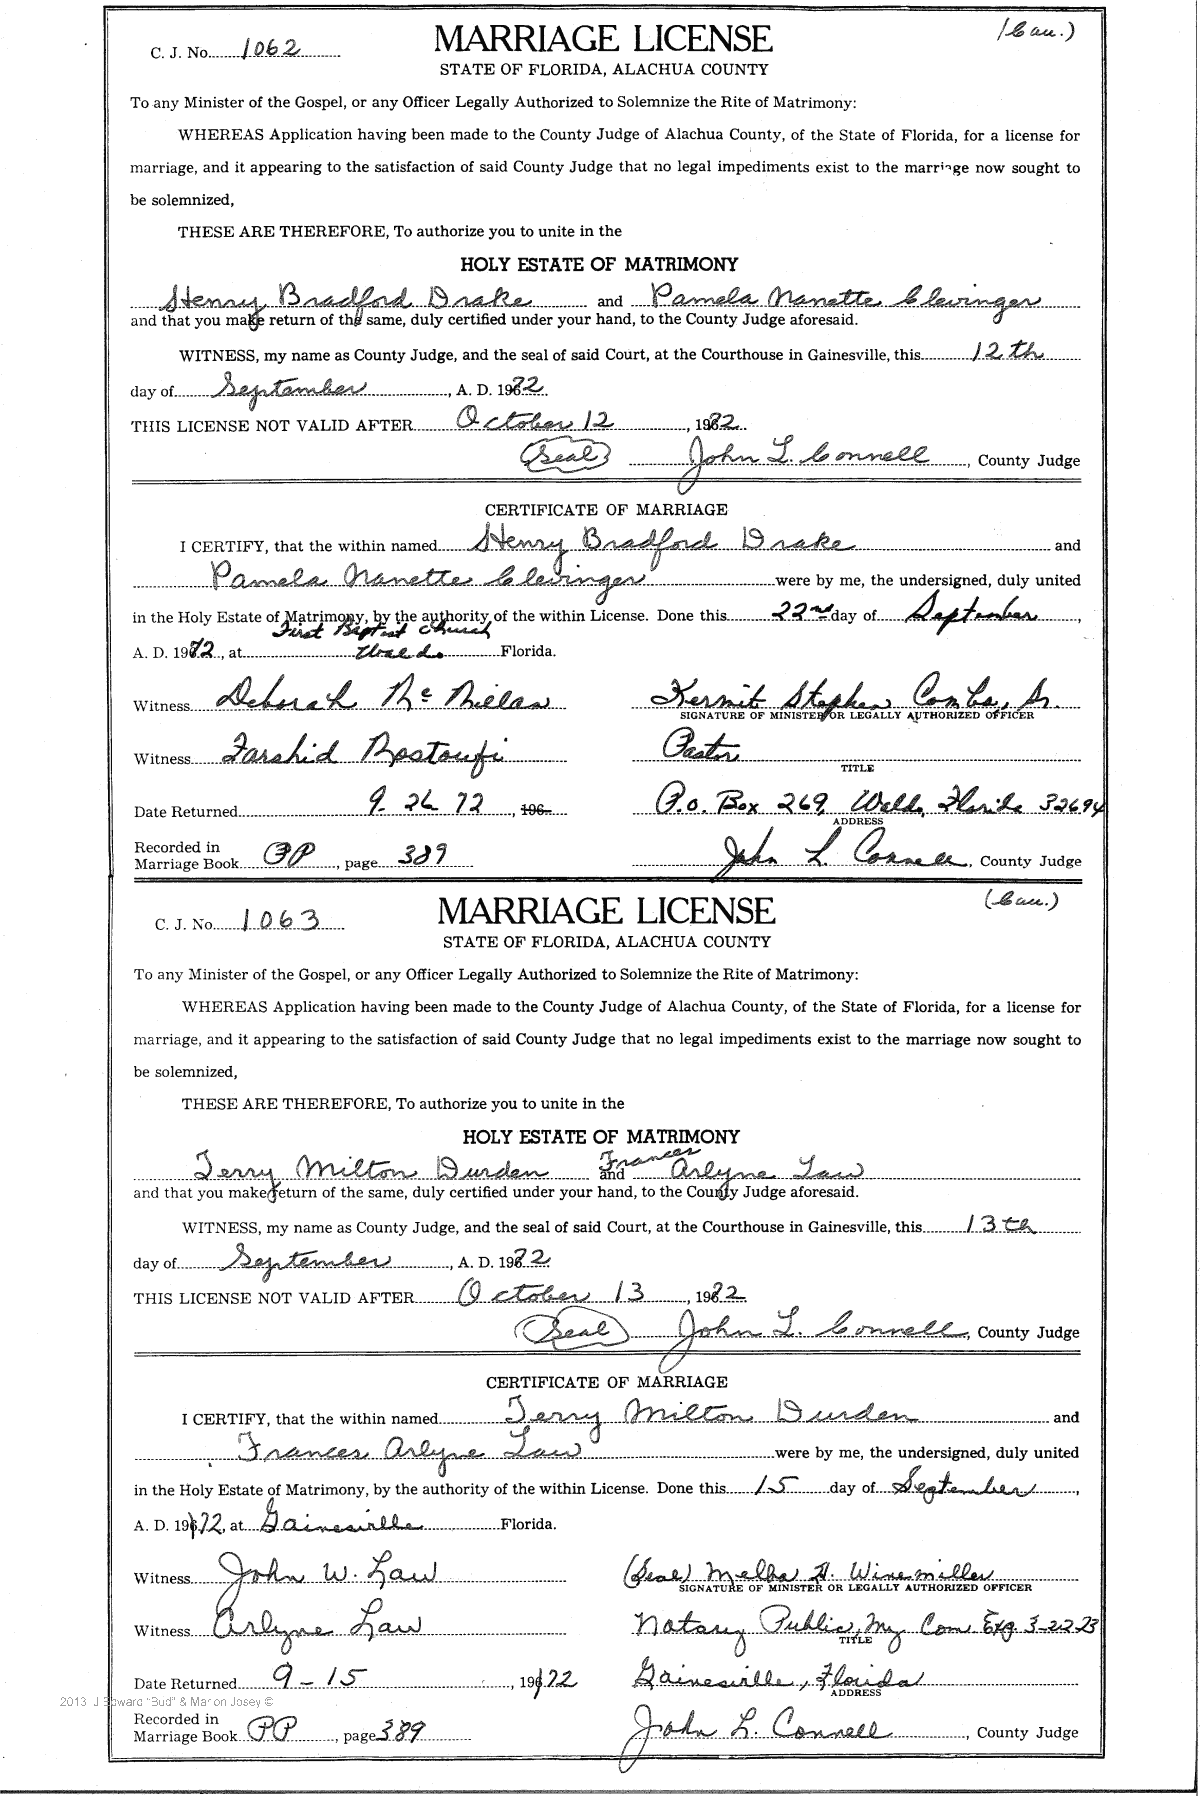 (Cau.)
C. J. No. 1062 MARRIAGE LICENSE
STATE OF FLORIDA, ALACHUA COUNTY
To any Minister of the Gospel, or any Officer Legally Authorized to Solemnize the Rite of Matrimony:
WHEREAS Application having been made to the County Judge of Alachua County, of the State of Florida, for a license for
marriage, and it appearing to the satisfaction of said County Judge that no legal impediments exist to the marriage now sought to
be solemnized,
THESE ARE THEREFORE, To authorize you to unite in the
HOLY ESTATE OF MATRIMONY
Henry Bradford Drake and Pamela Nanette Clevinger
and that you make return of the same, duly certified under your hand, to the County Judge aforesaid.
WITNESS, my name as County Judge, and the seal of said Court, at the Courthouse in Gainesville, this 12th
day of September, A. D. 1972
THIS LICENSE NOT VALID AFTER October 12, 1972.
(Seal) John L. Connell, County Judge
CERTIFICATE OF MARRIAGE
I CERTIFY, that the within named Henry Bradford Drake and
Pamela Nanette Clevinger were by me, the undersigned, duly united
in the Holy Estate of Matrimony, by the authority of the within License. Done this 22nd day of September,
First Baptist Church
A. D. 1972, at Waldo Florida.
Witness Deborah McMillan Kermit Stephen Combs, Sr.
SIGNATURE OF MINISTER OR LEGALLY AUTHORIZED OFFICER
Witness Farshid Rostoufi Pastor
TITLE
Date Returned 9-26-72, 196 P.O. Box 269, Waldo, Florida 32694
ADDRESS
Recorded in
Marriage Book PP, page 389 John L. Connell, County Judge
(Cau.)
C. J. No. 1063 MARRIAGE LICENSE
STATE OF FLORIDA, ALACHUA COUNTY
To any Minister of the Gospel, or any Officer Legally Authorized to Solemnize the Rite of Matrimony:
WHEREAS Application having been made to the County Judge of Alachua County, of the State of Florida, for a license for
marriage, and it appearing to the satisfaction of said County Judge that no legal impediments exist to the marriage now sought to
be solemnized,
THESE ARE THEREFORE, To authorize you to unite in the
HOLY ESTATE OF MATRIMONY
Terry Milton Durden and Frances Arlyne Law
and that you make return of the same, duly certified under your hand, to the County Judge aforesaid.
WITNESS, my name as County Judge, and the seal of said Court, at the Courthouse in Gainesville, this 13th
day of September, A. D. 1972
THIS LICENSE NOT VALID AFTER October 13, 1972
(Seal) John L. Connell, County Judge
CERTIFICATE OF MARRIAGE
I CERTIFY, that the within named Terry Milton Durden and
Frances Arlyne Law were by me, the undersigned, duly united
in the Holy Estate of Matrimony, by the authority of the within License. Done this 15 day of September,
A. D. 1972, at Gainesville Florida.
Witness John W. Law (Seal) Melba H. Winemiller
SIGNATURE OF MINISTER OR LEGALLY AUTHORIZED OFFICER
Witness Arlyne Law Notary Public, My Com. Exp. 3-22-73
TITLE
Date Returned 9-15, 1972 Gainesville, Florida
ADDRESS
2013 J Edward "Bud" & Marion Josey ©
Recorded in
Marriage Book PP, page 389 John L. Connell, County Judge